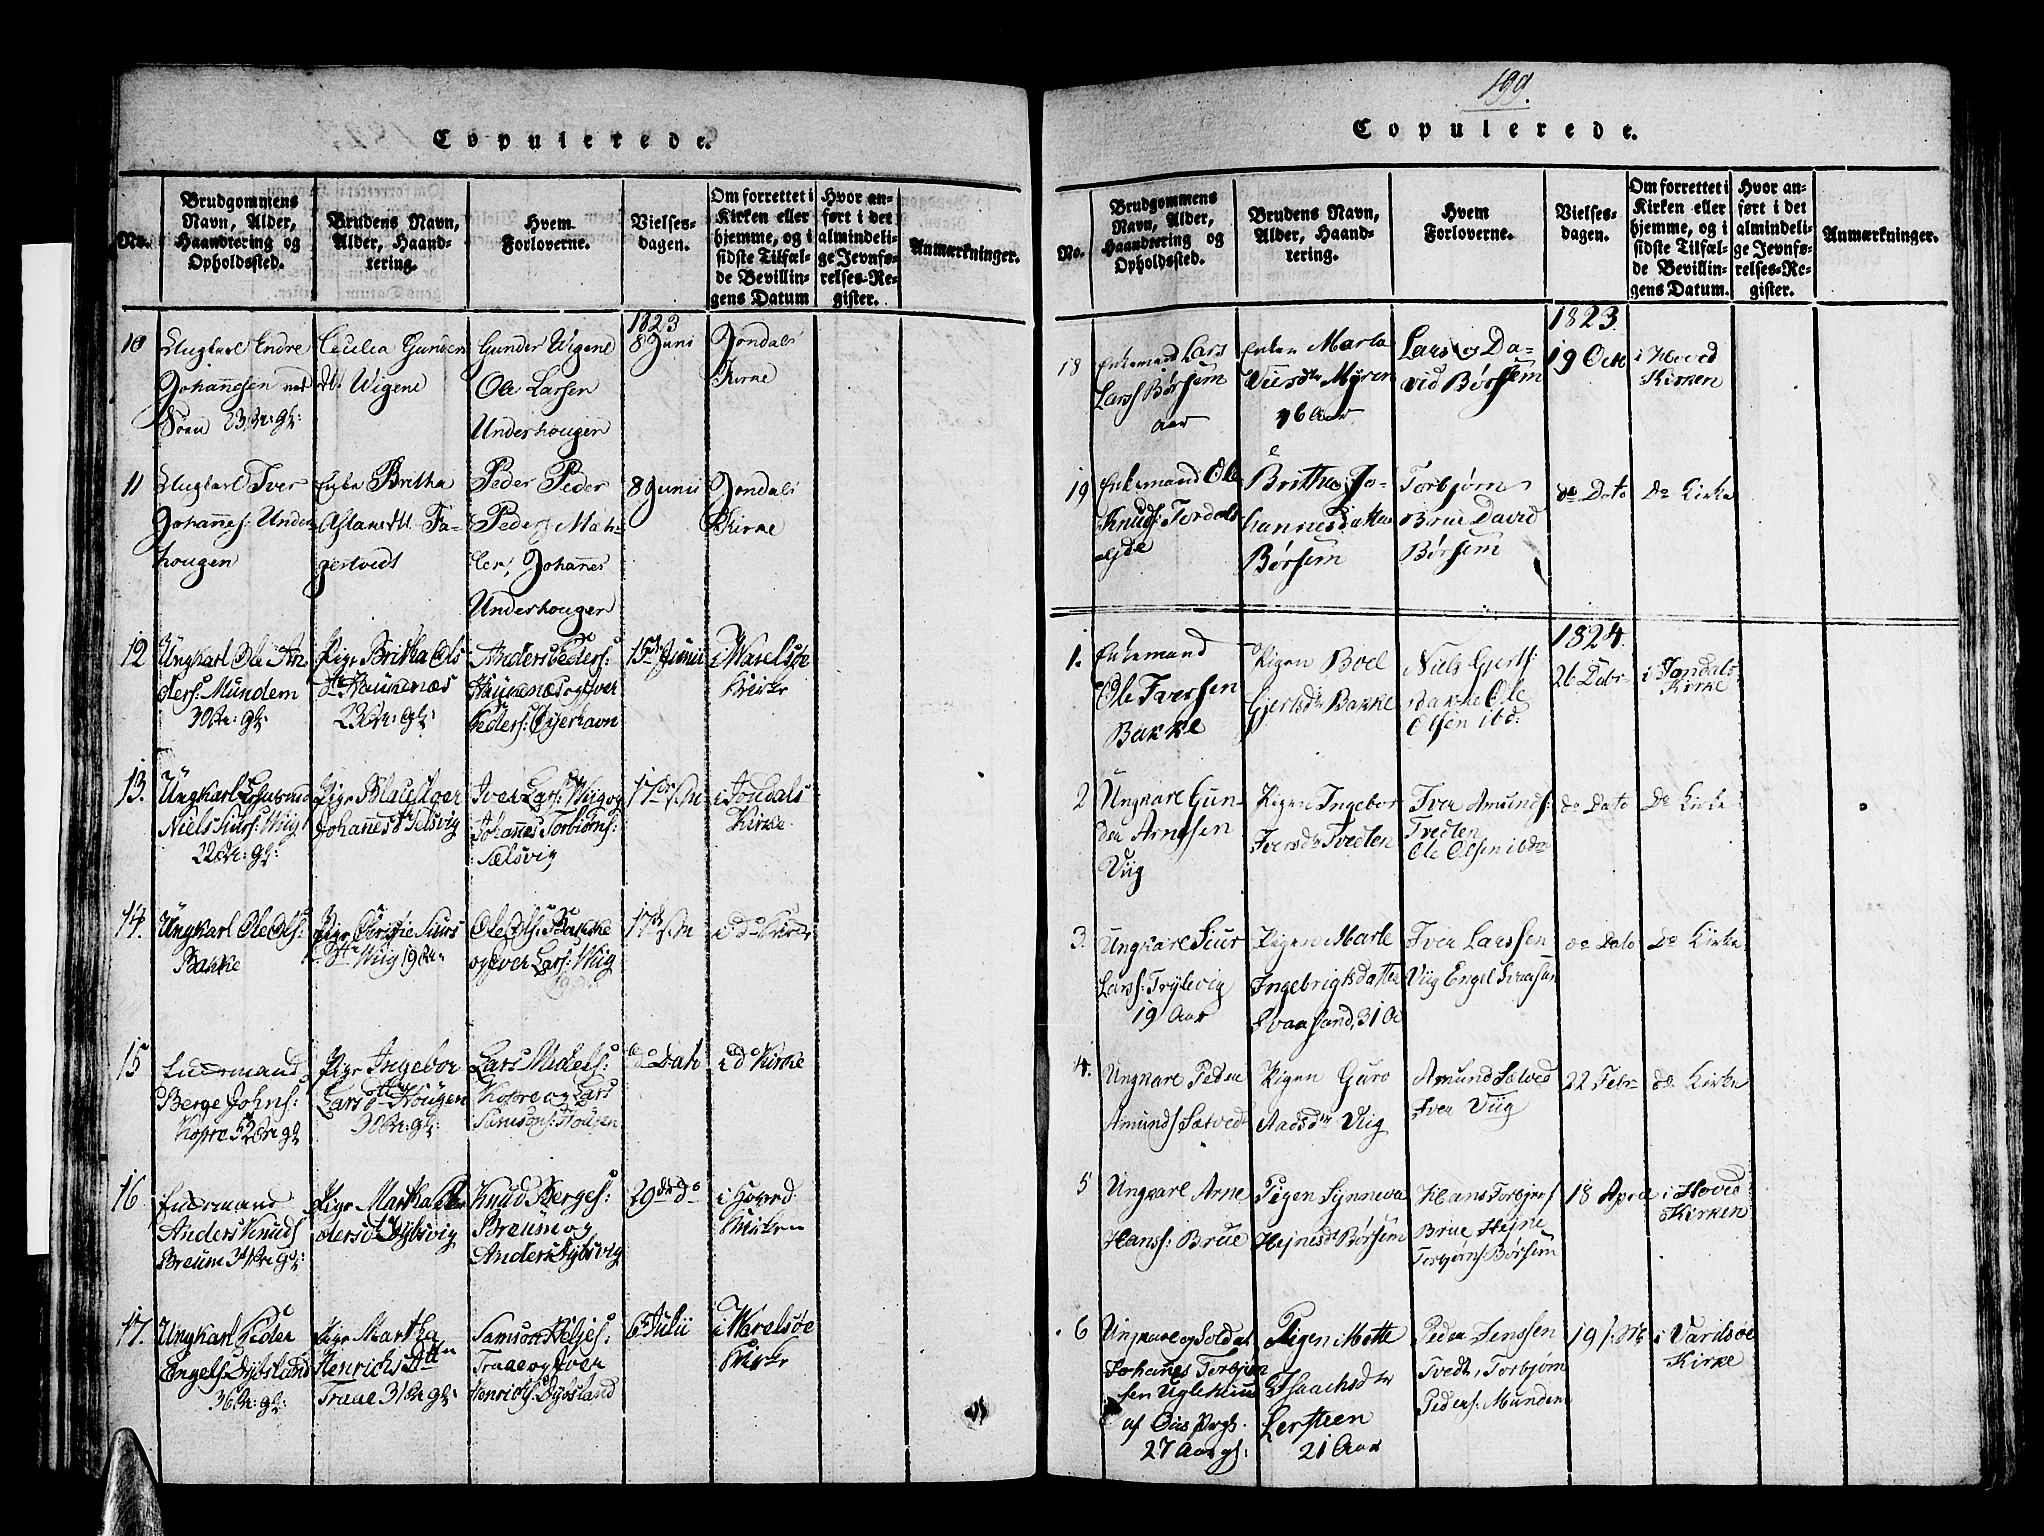 Copulerede.
No.
Brudgommens
Navn, Alder,
Haandtering og
Opholdssted.
Brudens Navn,
Alder, Haand-
tering.
Hvem
Forloverne.
Vielses-
dagen.
Om forrettet i
Kirken eller
hjemme, og i
sidste Tilfæl-
de Bevillin-
gens Datum
Hvor an-
ført i det
almindeli-
ge Jevnfø-
relses-Re-
gister.
Anmærkninger.
1823
10
Ungkarl Endre
Johannesen
23 Aar: gl:
Cecilia Gunder
Dtr Wigene
Gunder Wigene
Ole Larsen
Underhougen
8 Junii
Jondals
Kirke
11
Ungkarl Iver
Johannes: Under
hougen
Enke Britha
Aslansdtt Fa-
gertvedt
Peder Peder
Peders Mæh-
ler, Johannes
Underhougen
8 Junii
Jondals
Kirke
12
Ungkarl Ole An
ders: Mundem
30 Ar: gl:
Pige Britha Ols
Dtr
22 Ar: gl:
Anders Peders:
og Iver
Peders: Øyerhavn
15de Junii
i Warelsøe
Kirke
13.
Ungkarl
Niels Siurs: Wiig
22 Ar: gl:
Pige
Johannesdtr Selsvig
Iver Lars: Wiig og
Johannes Torbiørns:
Sælsvig
17de s: M
i Jondals
Kirke
14.
Ungkarl Ole Ols:
Bakke
Pige Siurs
Dtr Wiig 19 Ar
Ole Ols: Bakke
og Iver Lars: Wiig
17de s: M
i do Kirke
15
Enkemand
Berge Johns:
Kopre 52 Ar gl
Pige Ingebor
Larsdtter Hougen
30 Ar: gl:
Lars Michels:
Kopre og Lars
Samsons: Hougen
do Dato
i do Kirke
16
Enkemand
Anders Knuds
Breum 34 Ar gl:
Pige Martha An
dersdtr Dybsvig
Knud Berges:
Breum og
Anders Dybsvig
29de do
i Hoved
Kirken
17.
Ungkarl Peder
Engels: Dybsland
36 Ar: gl:
Pige Martha
Henrichs Dtter
Traae 31 Ar gl:
Samson Heljes:
Traae og Iver
Henrichs: Dybsland
6te Julii
i Warelsøe
Kirke
199.
Copulerede.
No.
Brudgommens
Navn, Alder,
Haandtering og
Opholdssted.
Brudens Navn,
Alder, Haand-
tering.
Hvem
Forloverne.
Vielses-
dagen.
Om forrettet i
Kirken eller
hjemme, og i
sidste Tilfæl-
de Bevillin-
gens Datum.
Hvor an-
ført i det
almindeli-
ge Jevnfø-
relses-Re-
gister.
Anmærkninger.
1823.
18
Enkemand Lars
Larss Børsem
Aar
Enken Marta
Myren
46 Aar
Lars og Da-
vid Børsem
19 Octb
i Hoved
Kirken
19
Enkemand Ole
Knuds: Tordals
ejde
Britha Jo-
hannesdatter
Børsem
Torbjørn
Brue David
Børsem
do Dato
Do Kirke
1824.
1.
Enkemand
Ole Iversen
Bakke
Pigen Boel
Gjertsdr Bakke
Niels Gjerts:
Bakke Ole
Olsen ibd:
26 Febr
i Jondals
Kirke
2
Ungkarl Gun-
der Arnesen
Viig
Pigen Ingebor
Iversdr Tveten
Iver Amunds:
Tvedten
Ole Olsen ibdm
do Dato
Do Kirke
3.
Ungkarl Siur
Larss: Trylevig
19 Aar
Pigen Marte
Ingebrigtsdatter
Svaasand, 31 A
Iver Larssen
Viig Engel Svaasan
do Dato
Do Kirke
4.
Ungkarl Peder
Amunds Sætvedt
Pigen Guro
Aadsdtr Viig
Amund Sætved
Iver Viig
22 Febr
do Kirke
5
Ungkarl Arne
Hanss: Brue
Pigen Synneva
Hejnesdr Børsem
Hans Torbjørs
Brue, Hejne
Torbjørns: Børsem
18 April
i Hoved
Kirken
6
Ungkarl og Soldat
Johanes Torbjørn
sen Uglehuus
af
27 Aar gl:
Pigen Mette
Isaachsdtr
Lersteen
21 Aar
Peder Jenssen
Tvedt, Torbjørn
Peders: Mundem
19 s. M
i Varilsøe
Kirke